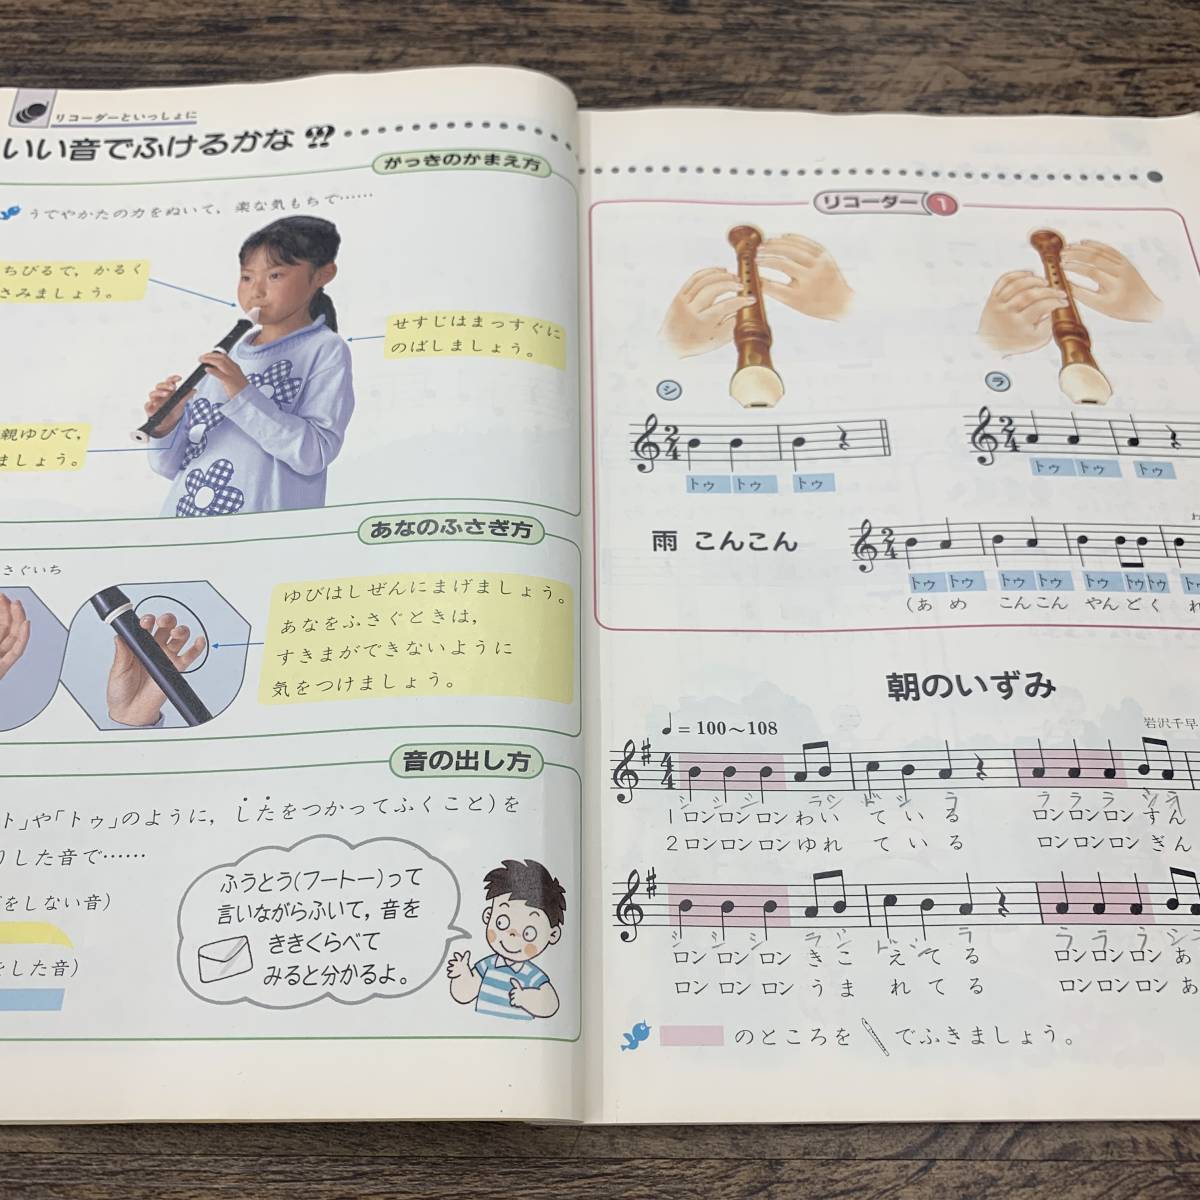 リコーダーといっしょに
いい音でふけるかな??
がっきのかまえ方
うでやかたの力をぬいて，楽な気もちで……
ちびるで，かるく
さみましょう。
せすじはまっすぐに
のばしましょう。
親ゆびで，
ましょう。
あなのふさぎ方
さぐいち
ゆびはしぜんにまげましょう。
あなをふさぐときは，
すきまができないように
気をつけましょう。
音の出し方
ト」や「トゥ」のように，したをつかってふくこと)を
した音で……
をしない音)
をした音)
ふうとう(フートー)って
言いながらふいて，音を
ききくらべて
みると分かるよ。
リコーダー 1
シ
ラ
2/4
2/4
トゥ トゥ トゥ
トゥ トゥ トゥ
雨 こんこん
2/4
トゥ トゥ トゥ トゥ トゥ トゥトゥ
(あ め こん こん やん ど く れ
朝のいずみ
♩= 100～108
岩沢千早
4/4
シ シ シ ラシ ド シ ラ ラ ラ ラ シラ
1 ロン ロン ロン わ い て い る ロン ロン ロン す ん
2 ロン ロン ロン ゆ れ て い る ロン ロン ロン ぎ ん
シ シ シ ラ シ ド シ ラ ラ ラ ラ シ
ロン ロン ロン き こ え て る ロン ロン ロン あ
ロン ロン ロン う ま れ て る ロン ロン ロン あ
のところを でふきましょう。